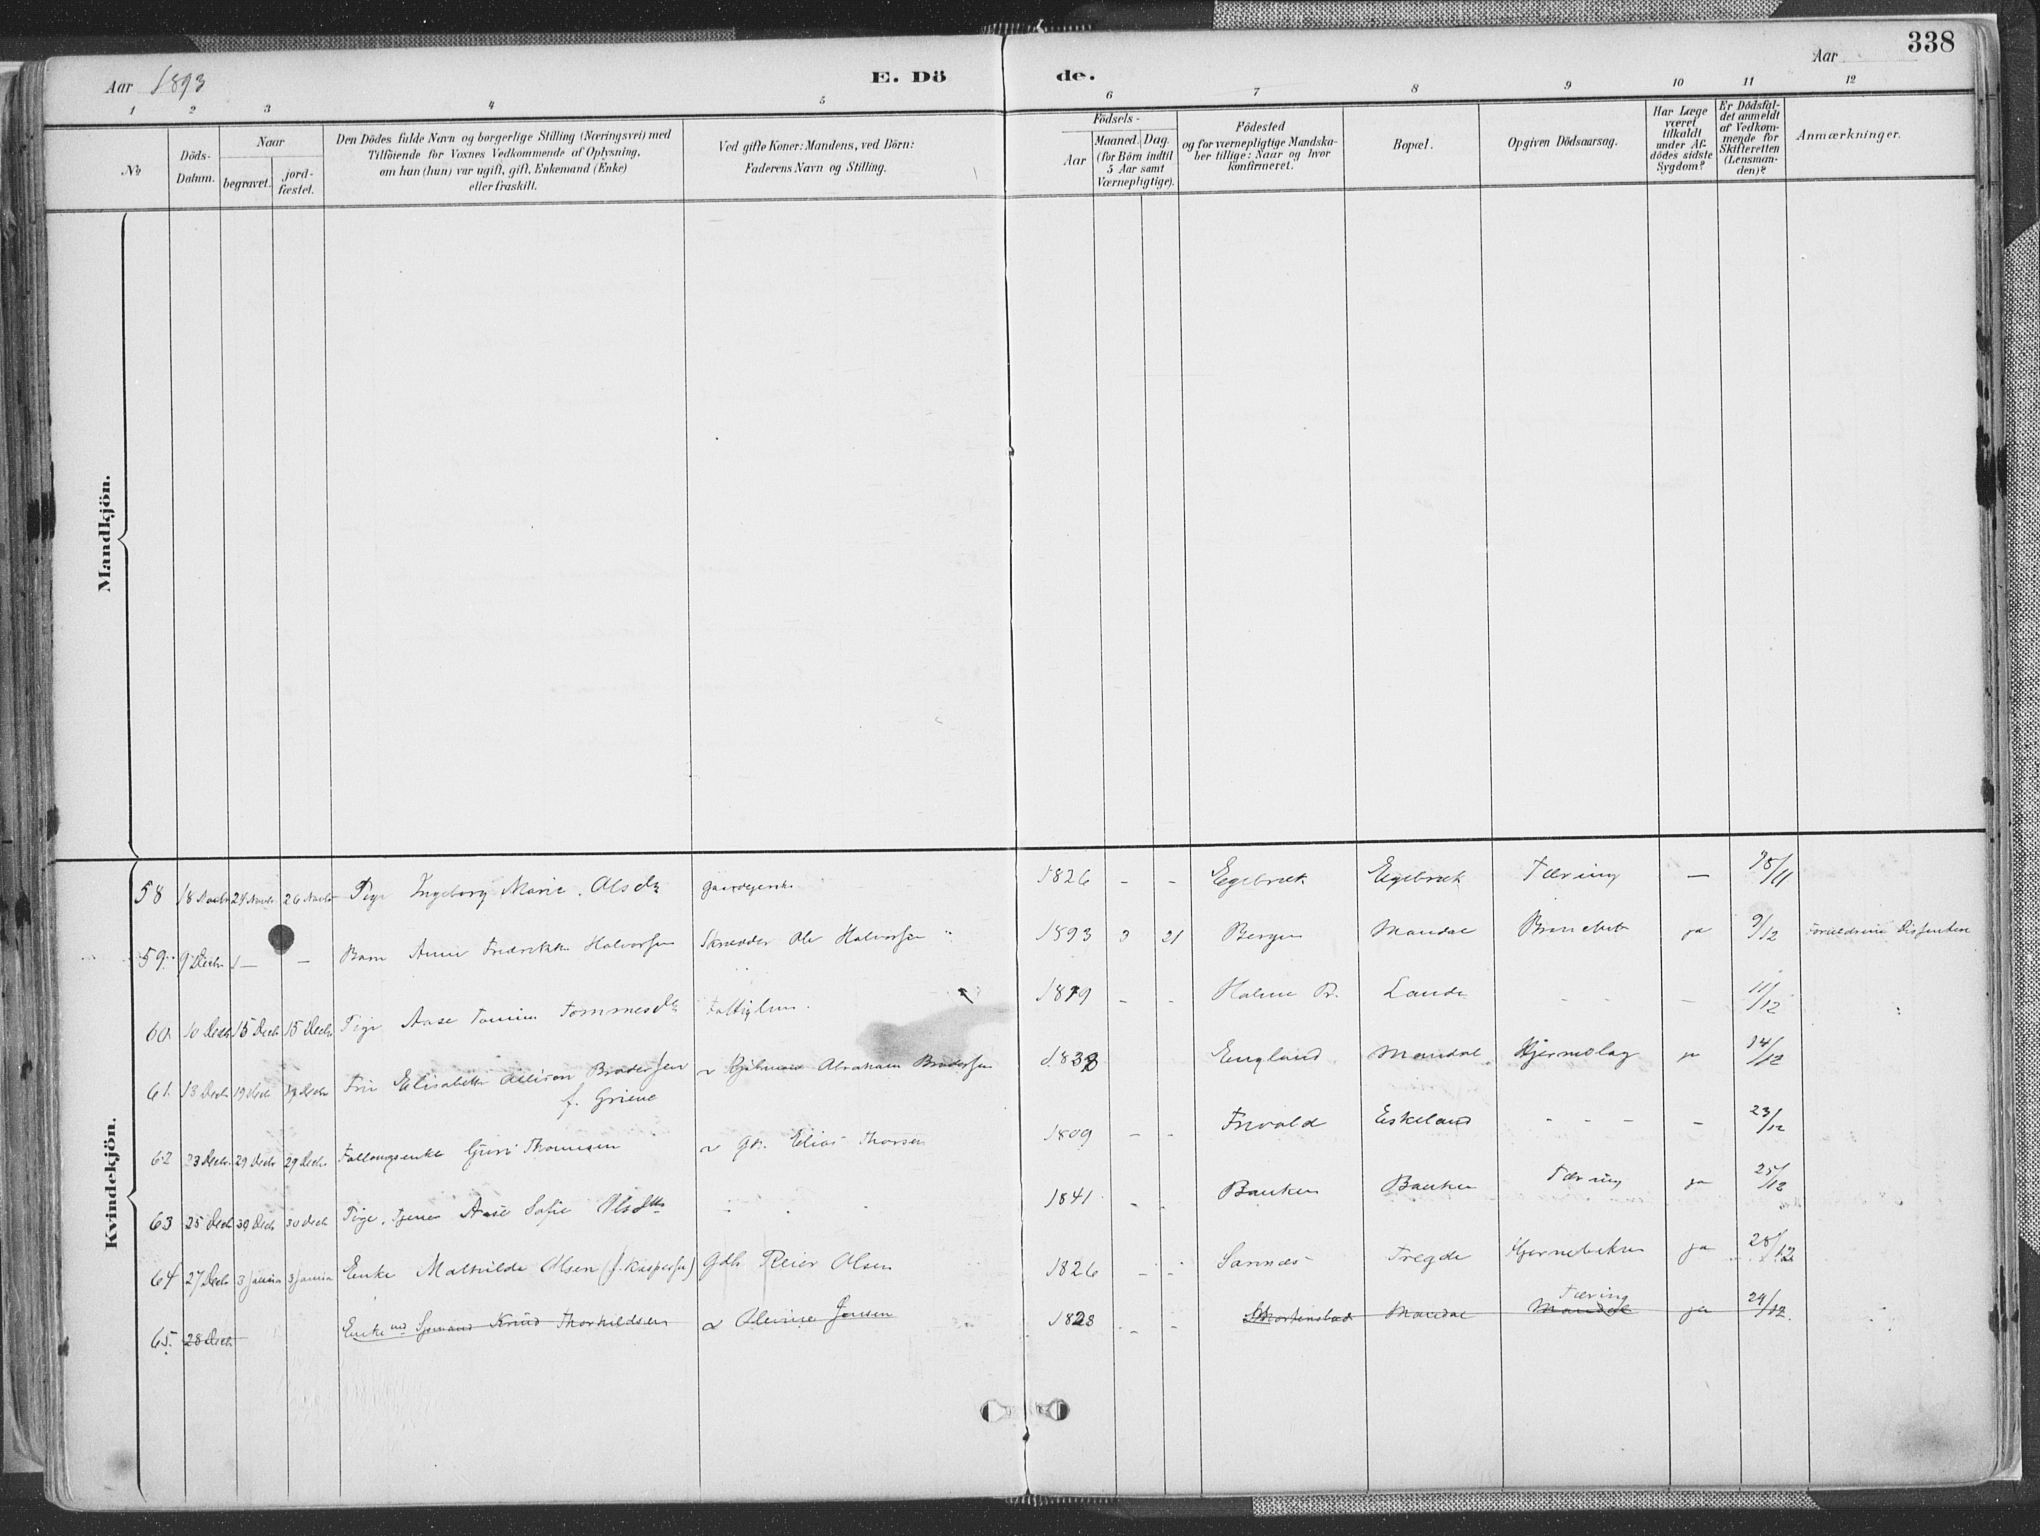 338
Aar 1893
E. Dö
de.
Aar
1 2 3 4 5 6 7 8 9 10 11 12
No
Döds-
Datum.
Naar
begravet.
jord-
fæstet.
Den Dödes fulde Navn og borgerlige Stilling (Næringsvei) med
Tilföiende for Voxnes Vedkommende af Oplysning,
om han (hun) var ugift, gift, Enkemand (Enke)
eller fraskilt.
Ved gifte Koner: Mandens, ved Börn:
Faderens Navn og Stilling.
Födsels-
Aar
Maaned.
Dag.
(for Börn indtil
5 Aar samt
Værnepligtige).
Födested
og for værnepligtige Mandska-
ber tillige: Naar og hvor
konfirmeret.
Bopæl.
Opgiven Dödsaarsag.
Har Læge
været
tilkaldt
under Af-
dödes sidste
Sygdom?
Er Dödsfal-
det anmeldt
af Vedkom-
mende for
Skifteretten
(Lensman-
den)?
Anmærkninger.
Mandkjön.
Kvindekjön.
58 18 Novbr 24 Novbr 26 Novbr Pige Ingeborg Marie Olsdtr 1826 - - Egebræk Egebræk Tæring — 25/11
59 9 Decbr — — Barn Anne Fredrikke Halvorsen Skrædder Ole Halvorsen 1893 3 21 Bergen Mandal ja 9/12 Forældrene Dissentere
60 10 Decbr 15 Decbr 15 Decbr Pige Aase Tomine Tommesdtr 1819 - - Halse Pr. Lande - - - 11/12
61 13 Decbr 19 Decbr 19 Decbr Fru Elisabeth Allison Brodersen Abraham Brodersen England Mandal Hjerneslag ja 14/12
f. Grieve
62 23 Decbr 29 Decbr 29 Decbr Guri Thomsen Elias Thorsen 1809 - - Frivold Eskeland - - - - 23/12
63 25 Decbr 30 Decbr 30 Decbr Pige, Aase Sofie Olsdtr 1841 - - Banken Banken Tæring ja 25/12
64 27 Decbr 3 Januar 3 Januar Enke Mathilde Olsen (f. Kaspersen) Gdb Reier Olsen 1826 - - Sannæs Tregde ja 28/12
Tæring
65 28 Decbr Enkemd Sjømand Knud Thorkildsen Olevine Jensen 1828 - - Mandal Mandal ja 24/12